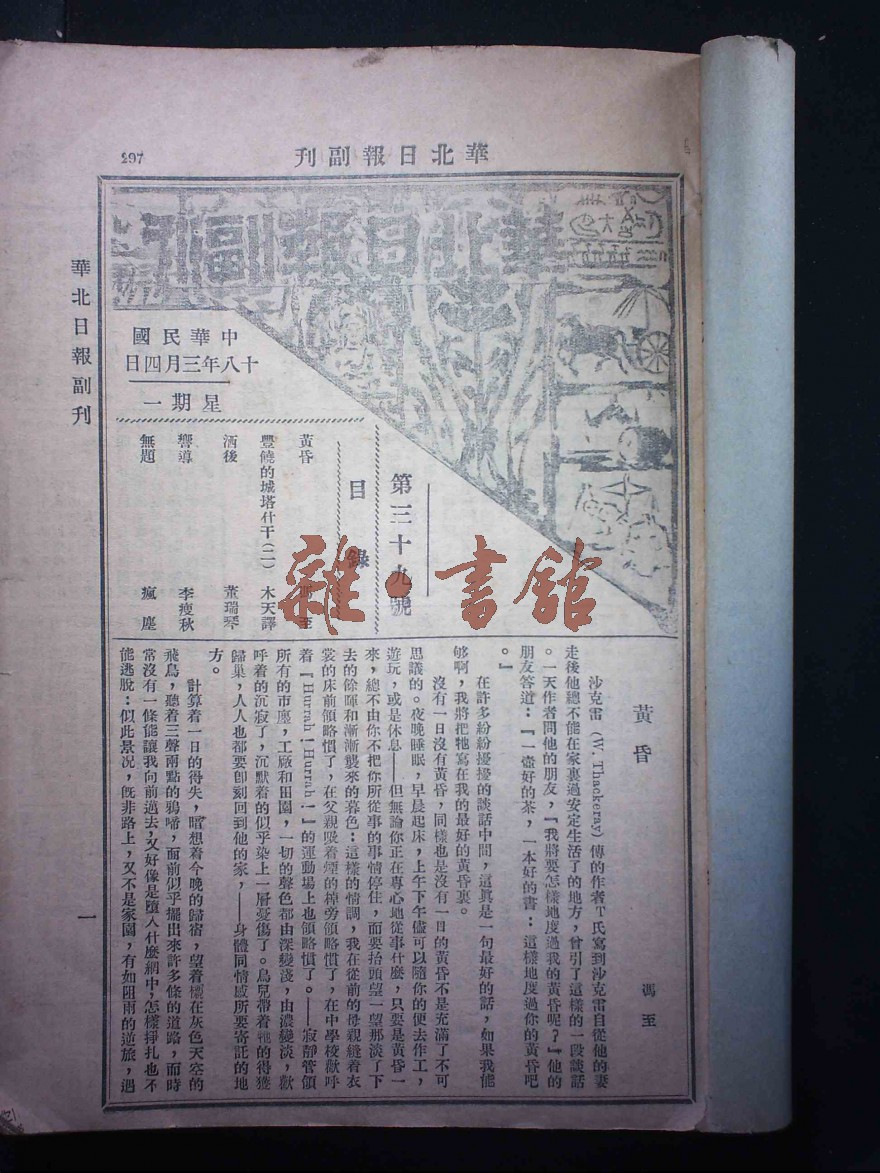 297
華北日報副刊
華北日報副刊
華北日報副刊
中華民國
十八年三月四日
星期一
第三十九號
目錄
黃昏 馮至
豐饒的城塔什干(二) 木天譯
酒後 董瑞琴
嚮導 李瘦秋
無題 瘋塵
雜·書館
黃昏
馮至
沙克雷(W. Thackeray)傳的作者T氏寫到沙克雷自從他的妻
走後他總不能在家裏過安定生活了的地方,曾引了這樣的一段談話
。一天作者問他的朋友,『我將要怎樣地度過我的黃昏呢?』他的
朋友答道:『一壺好的茶,一本好的書:這樣地度過你的黃昏吧
。』
在許多紛紛擾擾的談話中間,這眞是一句最好的話,如果我能
够啊,我將把牠寫在我的最好的黃昏裏。
沒有一日沒有黃昏,同樣也是沒有一日的黃昏不是充滿了不可
思議的。夜晚睡眠,早晨起床,上午下午儘可以隨你的便去作工,
遊玩,或是休息——但無論你正在專心地從事什麼,只要是黃昏一
來,總不由你不把你所從事的事情停住,而要抬頭望一望那淡了下
去的餘暉和漸漸襲來的暮色:這樣的情調,我在從前的母親縫着衣
裳的床前領略慣了,在父親吸着煙的棹旁領略慣了,在中學校歡呼
着『Hurrah!Hurrah!』的運動場上也領略慣了。——寂靜管領
所有的市廛,工廠和田園,一切的聲色都由深變淺,由濃變淡,歡
呼着的沉寂了,沉默着的似乎染上一層憂傷了。鳥兒帶着牠的得獲
歸巢,人人也都要卽刻回到他的家,——身體同情感所要寄託的地
方。
計算着一日的得失,暗想着今晚的歸宿,望着懷在灰色天空的
飛鳥,聽着三聲兩點的鴉啼,面前似乎擺出來許多條的道路,而時
常沒有一條能讓我向前邁去,又好像是墮人什麼網中,怎樣掙扎也不
能逃脫:似此景況,旣非路上,又不是家園,有如阻雨的逆旅,遇
一